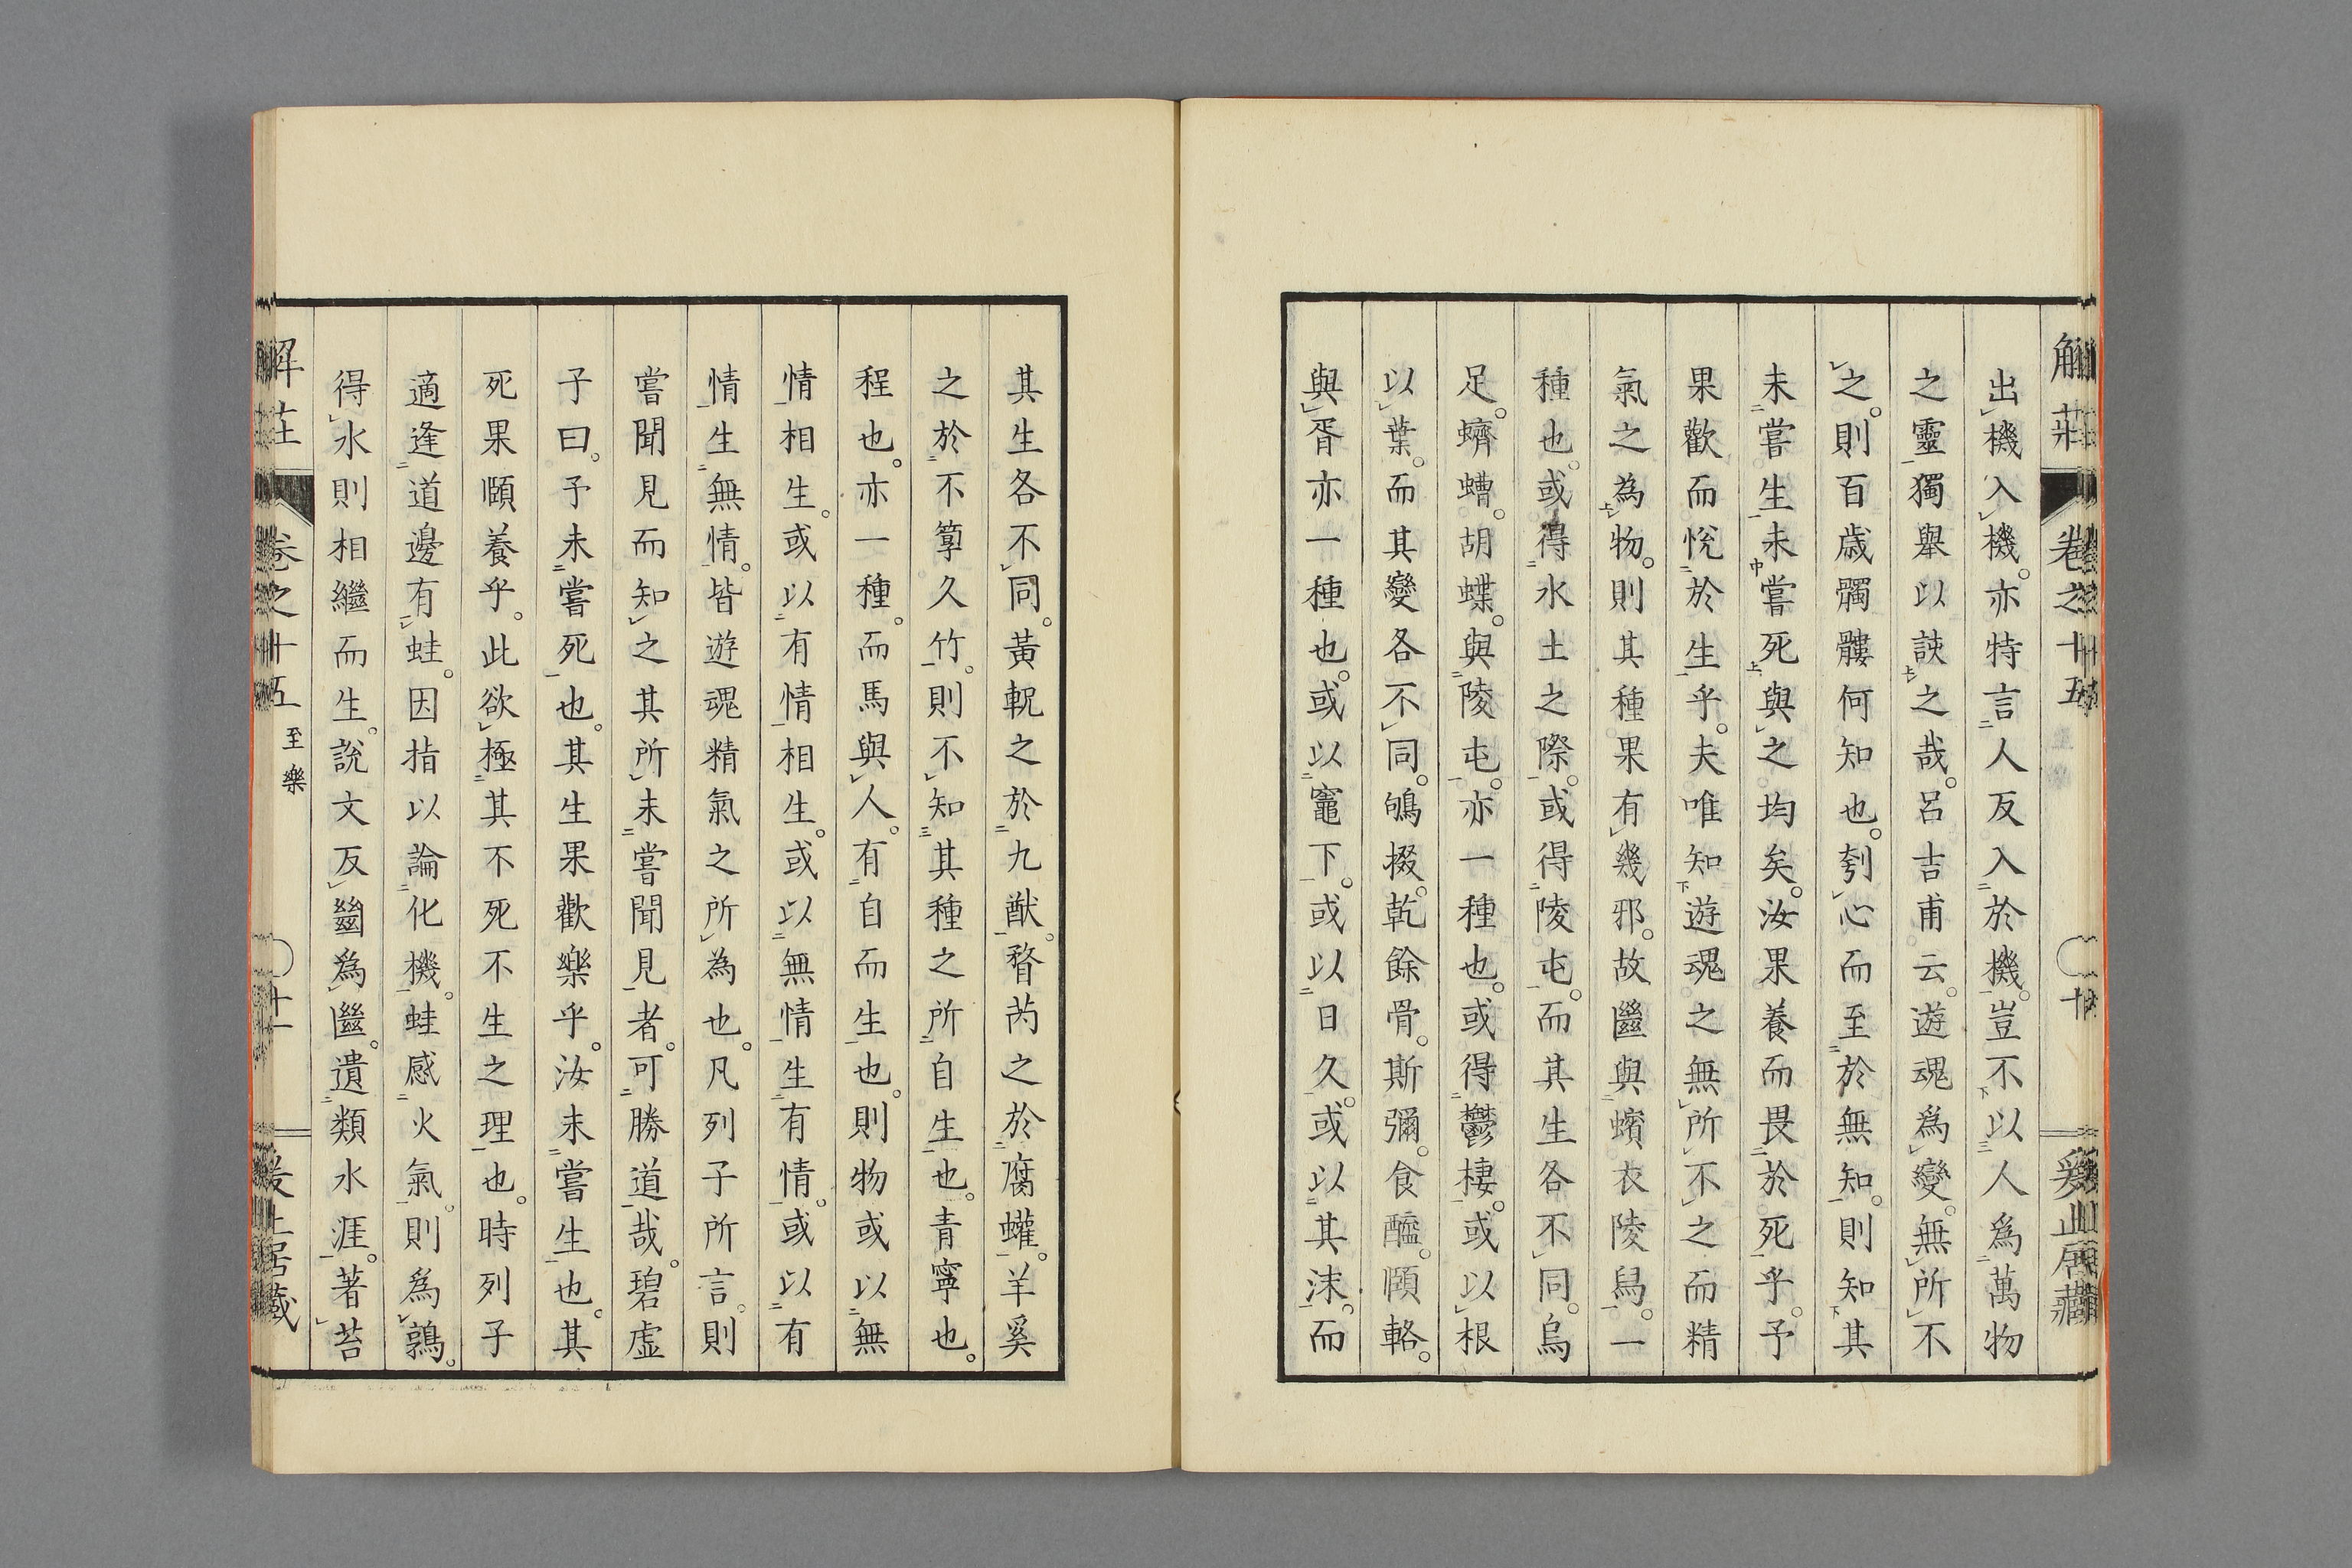 解莊 卷之十五 十 爰止居藏
出機入機。亦特言人反入於機。豈不以人爲萬物
之靈獨舉以諛之哉。呂吉甫云。遊魂爲變。無所不
之。則百歳髑髏何知也。刳心而至於無知。則知其
未嘗生未嘗死與之均矣。汝果養而畏於死乎。予
果歡而恱於生乎。夫唯知遊魂之無所不之而精
氣之為物。則其種果有幾邪。故㡭與蠙衣陵舄。一
種也。或得水土之際。或得陵屯。而其生各不同。烏
足。蠐螬。胡蝶。與陵屯。亦一種也。或得鬱棲。或以根
以葉。而其變各不同。鴝掇。乾餘骨。斯彌。食醯。頤輅。
與胥亦一種也。或以竈下。或以日久。或以其沫。而
其生各不同。黃軦之於九猷。瞀芮之於腐蠸。羊奚
之於不箰久竹。則不知其種之所自生也。青寧也。
程也。亦一種。而馬與人。有自而生也。則物或以無
情相生。或以有情相生。或以無情生有情。或以有
情生無情。皆遊魂精氣之所為也。凡列子所言。則
嘗聞見而知之其所未嘗聞見者。可勝道哉。碧虛
子曰。予未嘗死也。其生果歡樂乎。汝未嘗生也。其
死果頤養乎。此欲極其不死不生之理也。時列子
適逢道邊有蛙。因指以論化機。蛙感火氣。則爲鶉。
得水則相繼而生。說文反𢇍爲㡭。遺類水涯。著苔
解莊 卷之十五 至樂 十一 爰止居藏